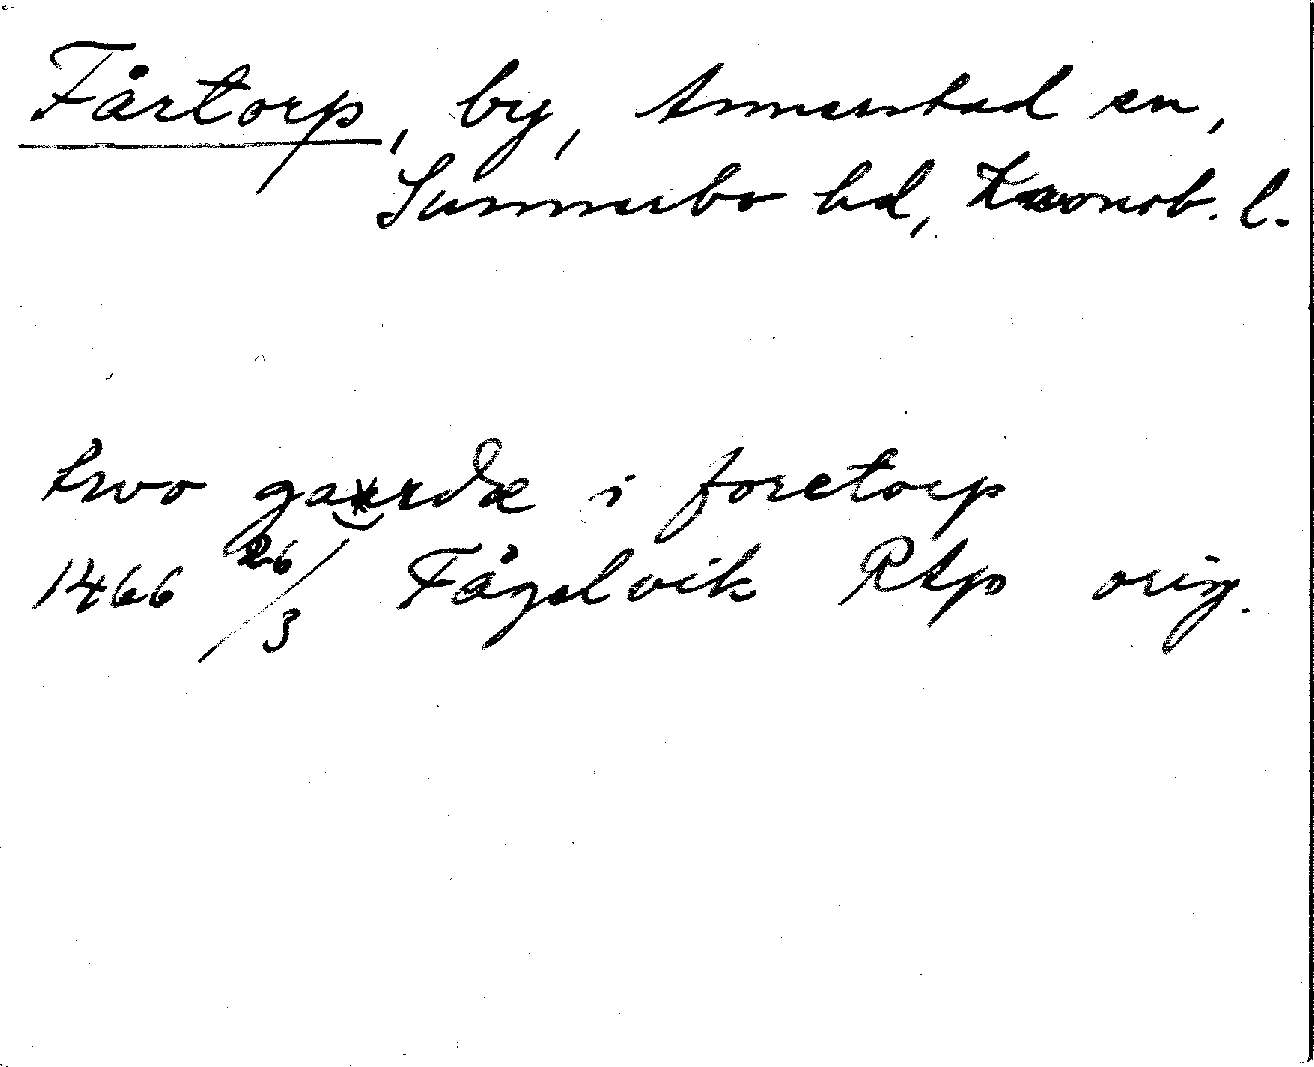 Fårtorp, by, Annerstad sn,
Sunnerbo hd, Kronob. l.
two gardæ i foretorp
1466 26/3 Fågelvik RAp orig.